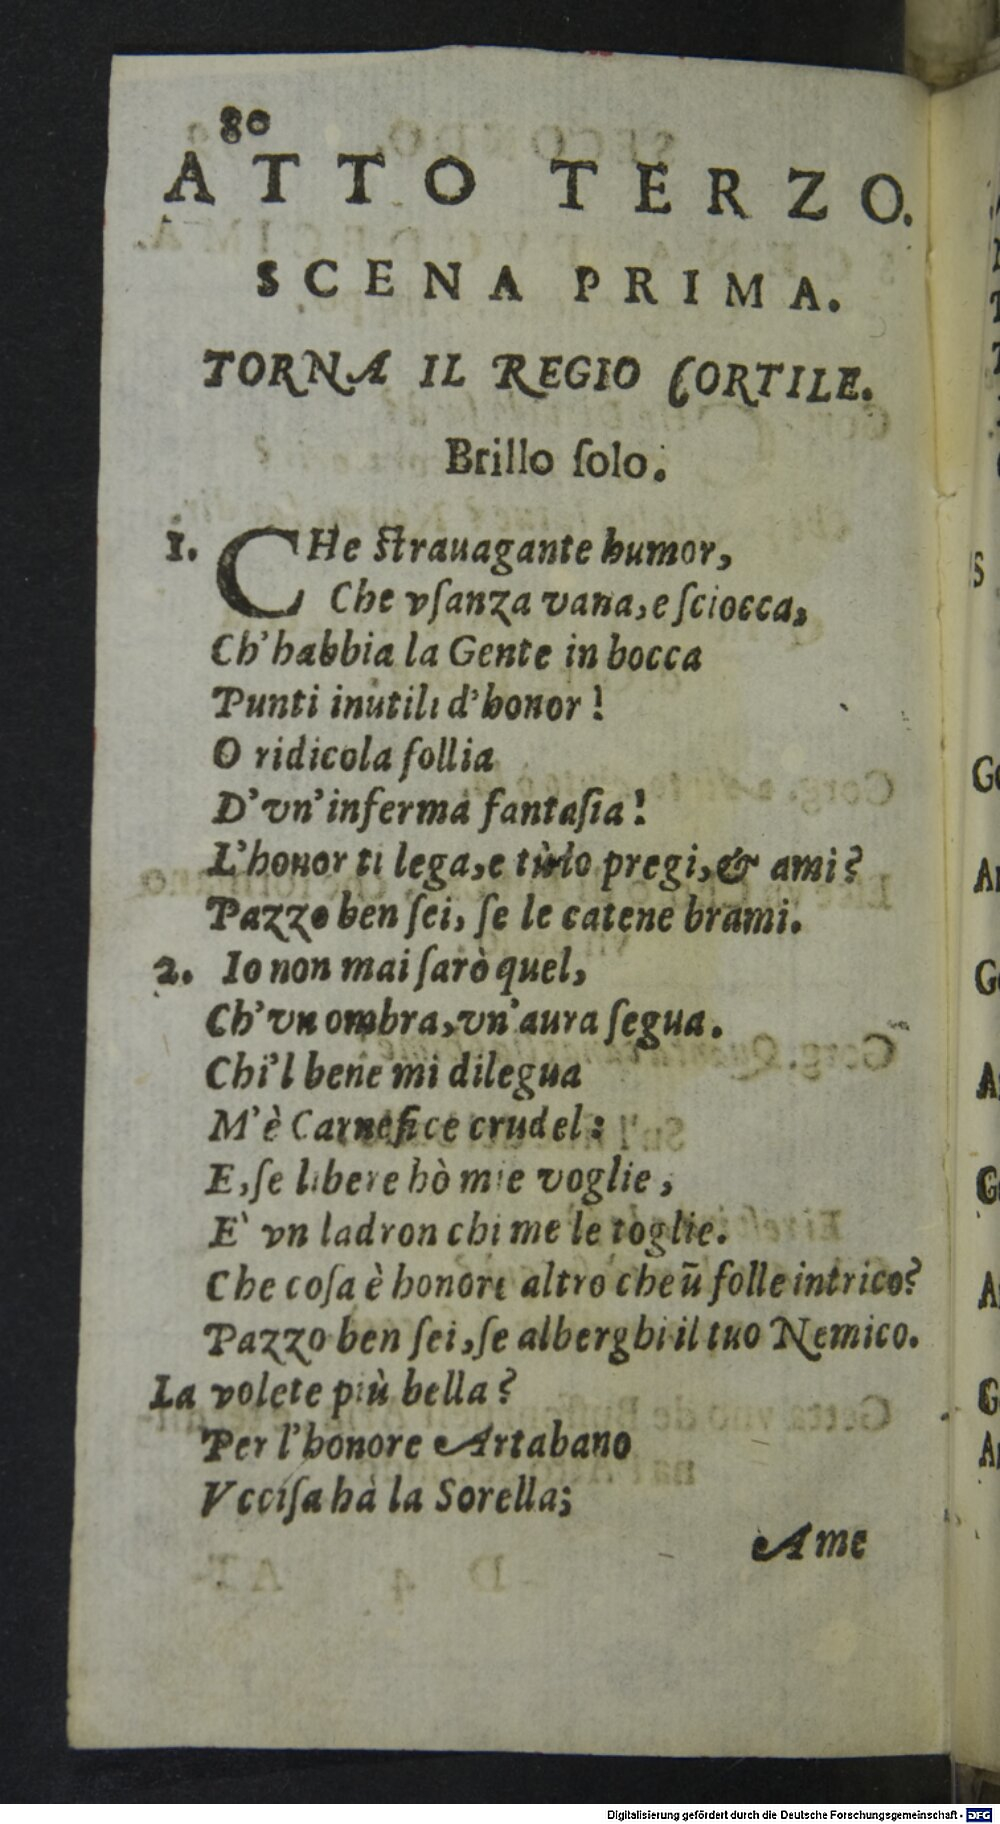 80
ATTO TERZO.
SCENA PRIMA.
TORNA IL REGIO CORTILE.
Brillo ſolo.
1. CHe ſtrauagante humor,
Che vſanza vana, e ſciocca,
Ch'habbia la Gente in bocca
Punti inutili d'honor!
O ridicola follia
D'vn' inferma fantaſia!
L'honor ti lega, e tù lo pregi, & ami?
Pazzo ben ſei, ſe le catene brami.
2. Io non mai ſarò quel,
Ch'vn ombra, vn' aura ſegua.
Chi'l bene mi dilegua
M'è Carnefice crudel:
E, ſe libere hò mie voglie,
E` vn ladron chi me le toglie.
Che coſa è honore altro che ũ folle intrico?
Pazzo ben ſei, ſe alberghi il tuo Nemico.
La volete più bella?
Per l'honore Artabano
Vcciſa hà la Sorella;
A me
Digitalisierung gefördert durch die Deutsche Forschungsgemeinschaft - DFG